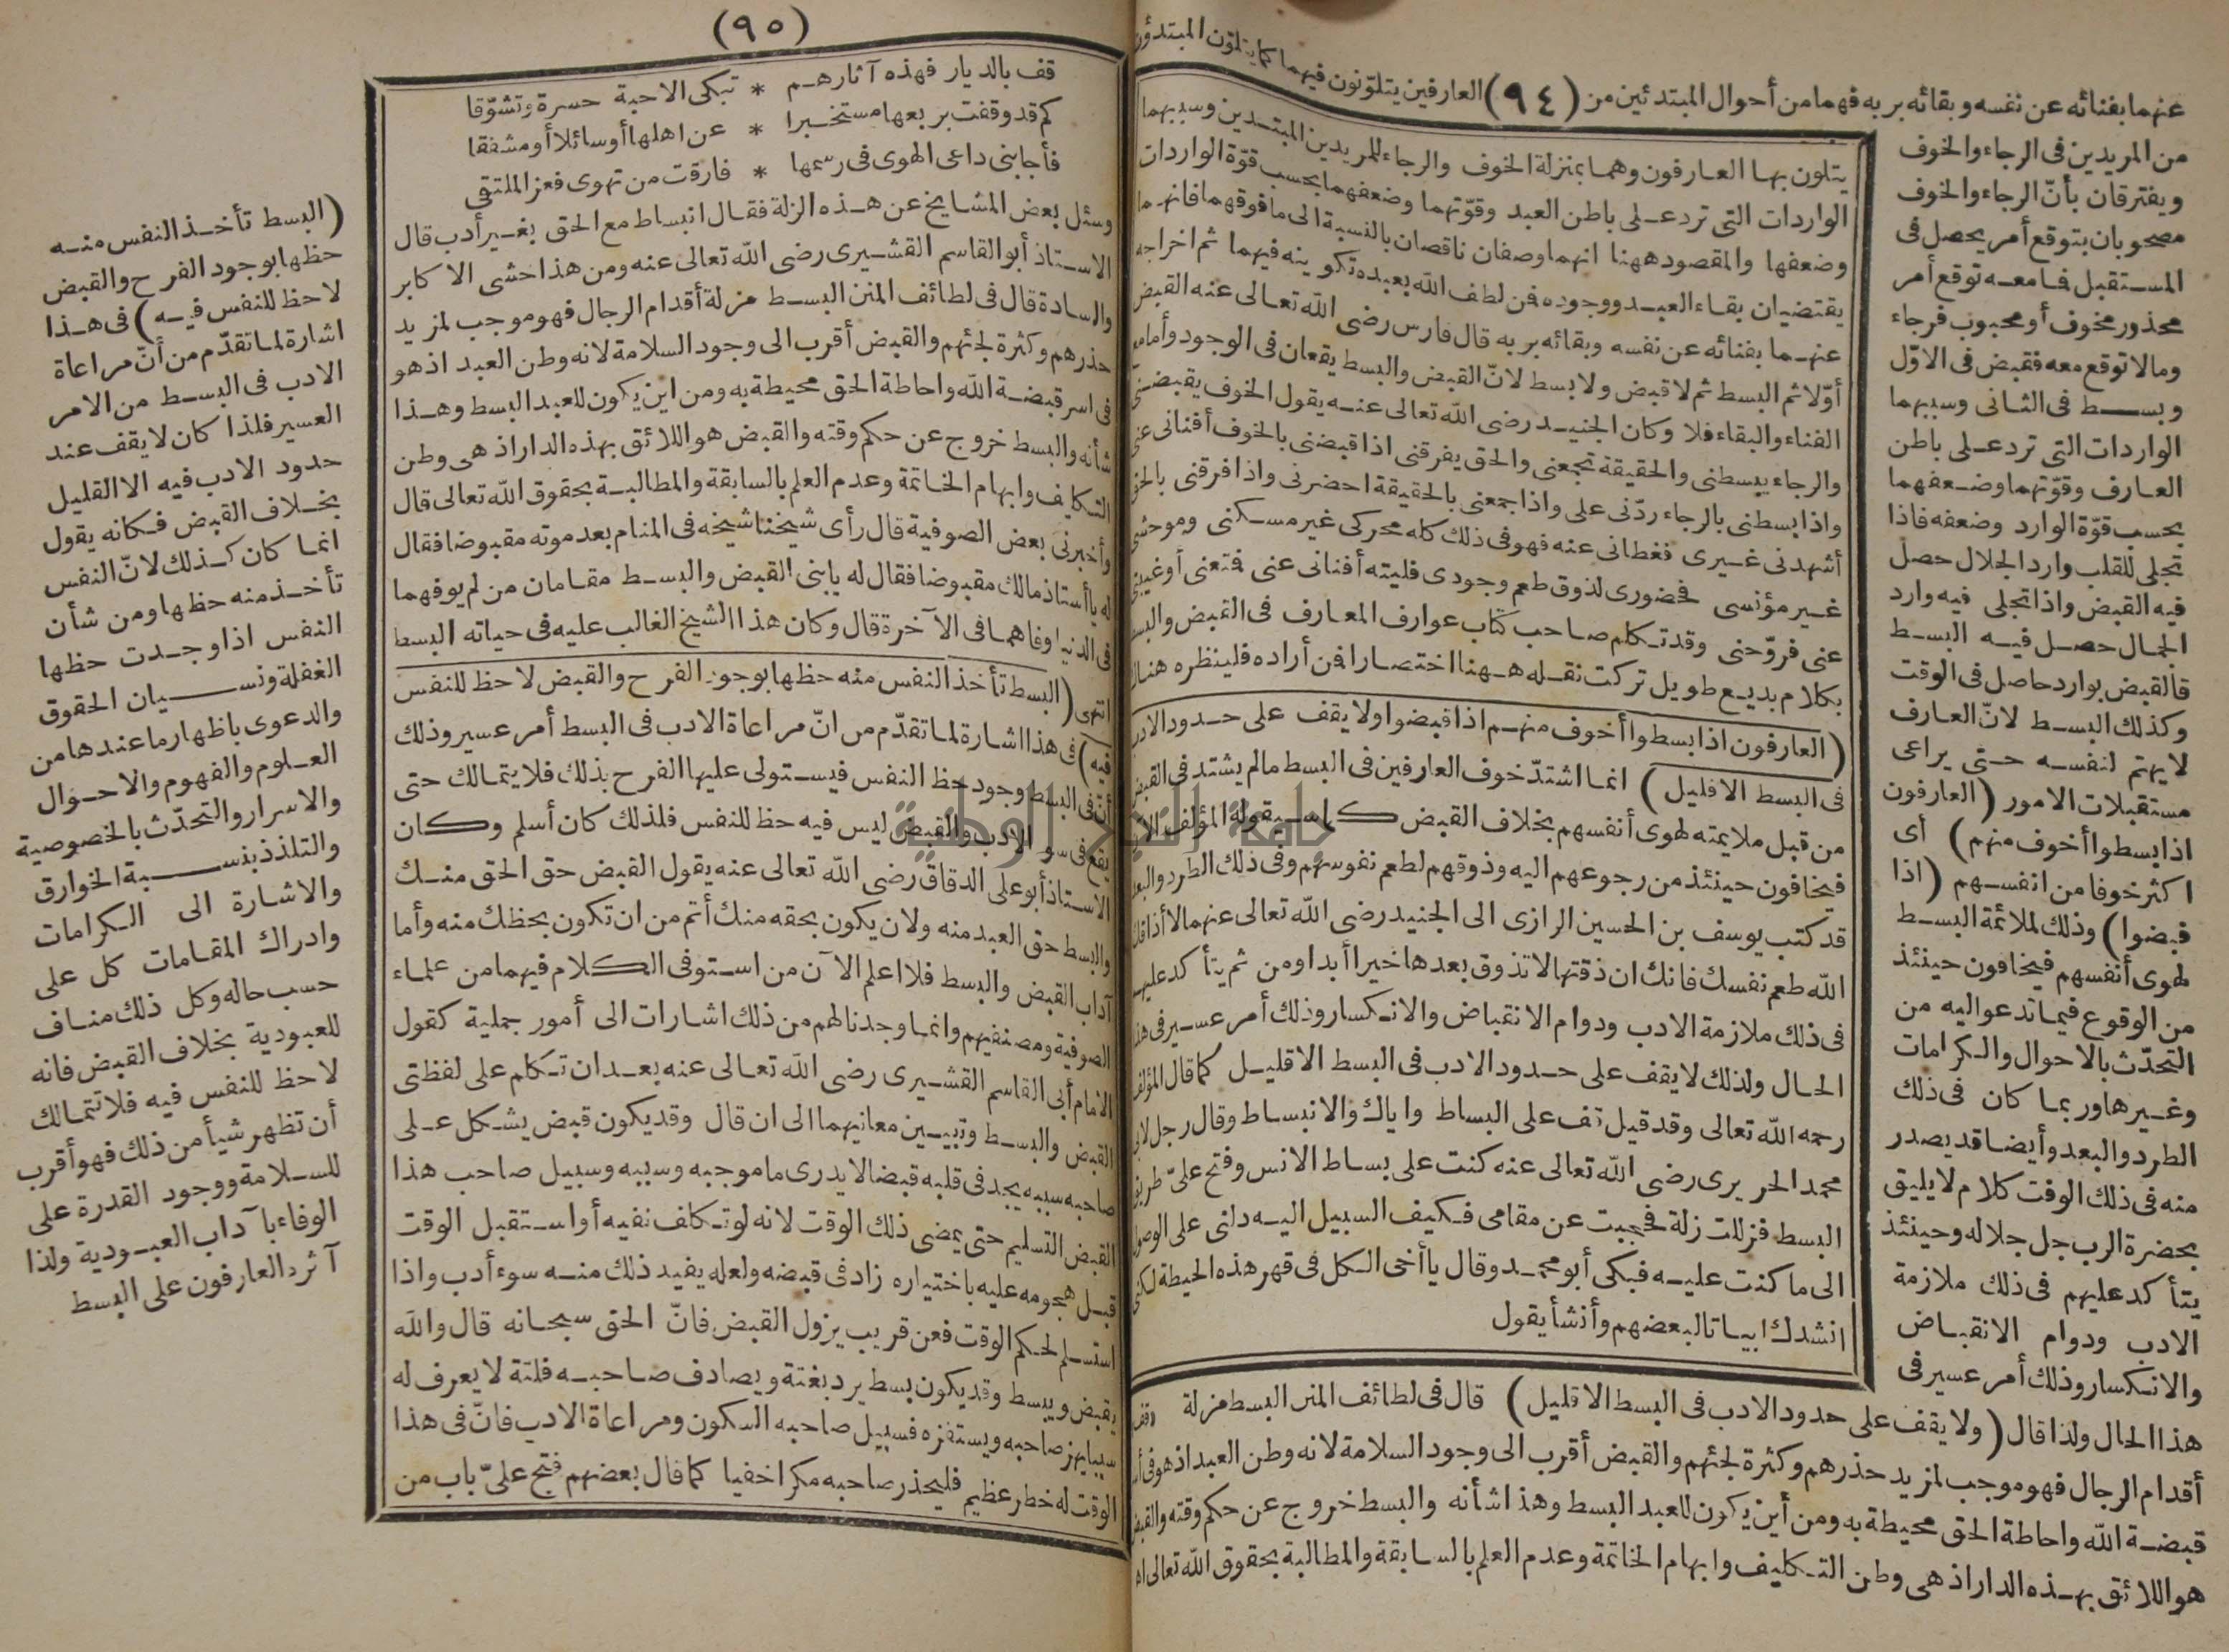 عنهما بفنائه عن نفسه وبقائه بربه فهما من أحوال المبتدئين من (٩٤) العارفين يتلوّنون فيهما كما يتلوّن المبتدؤن
من المريدين فى الرجاء والخوف
ويفترقان بأنّ الرجاء والخوف
مصحوبان بتوقع أمر يحصل فى
المستقبل فما معه توقع أمر
محذور مخوف أو محبوب فرجاء
وما لا توقع معه فقبض فى الاوّل
وبسط فى الثانى وسببهما
الواردات التى ترد على باطن
العارف وقوّتهما وضعفهما
بحسب قوّة الوارد وضعفه فاذا
تجلى للقلب وارد الجلال حصل
فيه القبض واذا تجلى فيه وارد
الجمال حصل فيه البسط
فالقبض بوارد حاصل فى الوقت
وكذلك البسط لانّ العارف
لا يهتم لنفسه حتى يراعى
مستقبلات الامور (العارفون
اذا بسطوا أخوف منهم) أى
اكثر خوفا من انفسهم (اذا
قبضوا) وذلك لملائمة البسط
لهوى أنفسهم فيخافون حينئذ
من الوقوع فيما تدعو اليه من
التحدّث بالاحوال والكرامات
وغيرها وربما كان فى ذلك
الطرد والبعد وأيضا قد يصدر
منه فى ذلك الوقت كلام لا يليق
بحضرة الرب جل جلاله وحينئذ
يتأكد عليهم فى ذلك ملازمة
الادب ودوام الانقباض
والانكسار وذلك أمر عسير فى
هذا الحال ولذا قال (ولا يقف على حدود الادب فى البسط الا قليل) قال فى لطائف المنن البسط مزلة
أقدام الرجال فهو موجب لمزيد حذرهم وكثرة لجئهم والقبض أقرب الى وجود السلامة لانه وطن العبد اذ هو فى
قبضة الله واحاطة الحق محيطة به ومن أين يكون للعبد البسط وهذا شأنه والبسط خروج عن حكم وقته والقبض
هو اللائق بهذه الدار اذ هى وطن التكليف وابهام الخاتمة وعدم العلم بالسابقة والمطالبة بحقوق الله تعالى اه
يتلون بها العارفون وهما بمنزلة الخوف والرجاء للمريدين المبتدين وسببهما
الواردات التى ترد على باطن العبد وقوّتهما وضعفهما بحسب قوّة الواردات
وضعفها والمقصود ههنا انهما وصفان ناقصان بالنسبة الى ما فوقهما فانهما
يقتضيان بقاء العبد ووجوده فمن لطف الله بعبده تكوينه فيهما ثم اخراجه
عنهما بفنائه عن نفسه وبقائه بربه قال فارس رضى الله تعالى عنه القبض
أوّلا ثم البسط ثم لا قبض ولا بسط لانّ القبض والبسط يقعان فى الوجود وأما مع
الفناء والبقاء فلا وكان الجنيد رضى الله تعالى عنه يقول الخوف يقبضنى
والرجاء يبسطنى والحقيقة تجمعنى والحق يفرقنى اذا قبضنى بالخوف أفنانى عنى
واذا بسطنى بالرجاء ردّنى على واذا جمعنى بالحقيقة احضرنى واذا فرقنى بالحق
أشهدنى غيرى فغطانى عنه فهو فى ذلك كله محركى غير مسكنى وموحشى
غير مؤنسى فحضورى لذوق طعم وجودى فليته أفنانى عنى فمتعنى أو غيبنى
عنى فروّحنى وقد تكلم صاحب كتاب عوارف المعارف فى القبض والبسط
بكلام بديع طويل تركت نقله ههنا اختصارا فمن أراده فلينظره هنالك
(العارفون اذا بسطوا أخوف منهم اذا قبضوا ولا يقف على حدود الادب
فى البسط الا قليل) انما اشتدّ خوف العارفين فى البسط مالم يشتد فى القبض
من قبل ملايمته لهوى أنفسهم بخلاف القبض كما سيقوله المؤلف الان
فيخافون حينئذ من رجوعهم اليه وذوقهم لطعم نفوسهم وفى ذلك الطرد والبعد
قد كتب يوسف بن الحسين الرازى الى الجنيد رضى الله تعالى عنهما لا أذاقك
الله طعم نفسك فانك ان ذقتها لا تذوق بعدها خيرا أبدا ومن ثم يتأكد عليهم
فى ذلك ملازمة الادب ودوام الانقباض والانكسار وذلك أمر عسير فى هذا
الحال ولذلك لا يقف على حدود الادب فى البسط الا قليل كما قال المؤلف
رحمه الله تعالى وقد قيل تف على البساط واياك والانبساط وقال رجل لابى
محمد الحريرى رضى الله تعالى عنه كنت على بساط الانس وفتح علىّ طريق
البسط فزللت زلة فحجبت عن مقامى فكيف السبيل اليه دلنى على الوصول
الى ما كنت عليه فبكى أبو محمد وقال يا أخى الكل فى قهر هذه الحيطة لكنى
انشدك ابياتا لبعضهم وأنشأ يقول
(٩٥)
قف بالديار فهذه آثارهم * تبكى الاحبة حسرة وتشوّقا
كم قد وقفت بربعها مستخبرا * عن اهلها أو سائلا أو مشفقا
فأجابنى داعى الهوى فى رسمها * فارقت من تهوى فعز الملتقى
وسئل بعض المشايخ عن هذه الزلة فقال انبساط مع الحق بغير أدب قال
الاستاذ أبو القاسم القشيرى رضى الله تعالى عنه ومن هذا خشى الاكابر
والسادة قال فى لطائف المنن البسط مزلة أقدام الرجال فهو موجب لمزيد
حذرهم وكثرة لجئهم والقبض أقرب الى وجود السلامة لانه وطن العبد اذ هو
فى اسر قبضة الله واحاطة الحق محيطة به ومن اين يكون للعبد البسط وهذا
شأنه والبسط خروج عن حكم وقته والقبض هو اللائق بهذه الدار اذ هى وطن
التكايف وابهام الخاتمة وعدم العلم بالسابقة والمطالبة بحقوق الله تعالى قال
وأخبرنى بعض الصوفية قال رأى شيخنا شيخه فى المنام بعد موته مقبوضا فقال
له يا أستاذ مالك مقبوضا فقال له يا بنى القبض والبسط مقامان من لم يوفهما
فى الدنيا وفاهما فى الآخرة قال وكان هذا الشيخ الغالب عليه فى حياته البسط
انتهى (البسط تأخذ النفس منه حظها بوجود الفرح والقبض لا حظ للنفس
فيه) فى هذا اشارة لما تقدّم من انّ مراعاة الادب فى البسط أمر عسير وذلك
أنّ فى البسط وجود حظ النفس فيستولى عليها الفرح بذلك فلا يتمالك حتى
يقع فى سوء الادب والقبض ليس فيه حظ للنفس فلذلك كان أسلم وكان
الاستاذ أبو على الدقاق رضى الله تعالى عنه يقول القبض حق الحق منك
والبسط حق العبد منه ولان يكون بحقه منك أتم من ان تكون بحظك منه وأما
آداب القبض والبسط فلا اعلم الآن من استوفى الكلام فيهما من علماء
الصوفية ومصنفيهم وانما وجدنا لهم من ذلك اشارات الى أمور جملية كقول
الامام أبى القاسم القشيرى رضى الله تعالى عنه بعد ان تكلم على لفظتى
القبض والبسط وتبيين معانيهما الى ان قال وقد يكون قبض يشكل على
صاحبه سببه يجد فى قلبه قبضا لا يدرى ما موجبه وسببه وسبيل صاحب هذا
القبض التسليم حتى يمضى ذلك الوقت لانه لو تكلف نفيه أو استقبل الوقت
قبل هجومه عليه باختياره زاد فى قبضه ولعله يفيد ذلك منه سوء أدب واذا
استسلم لحكم الوقت فعن قريب يزول القبض فانّ الحق سبحانه قال والله
يقبض ويبسط وقد يكون بسط يرد بغتة ويصادف صاحبه فلتة لا يعرف له
سببا يهز صاحبه ويستفزه فسبيل صاحبه السكون ومراعاة الادب فانّ فى هذا
الوقت له خطر عظيم فليحذر صاحبه مكرا خفيا كما قال بعضهم فتح علىّ باب من
(البسط تأخذ النفس منه
حظها بوجود الفرح والقبض
لا حظ للنفس فيه) فى هذا
اشارة لما تقدّم من أنّ مراعاة
الادب فى البسط من الامر
العسير فلذا كان لا يقف عند
حدود الادب فيه الا القليل
بخلاف القبض فكانه يقول
انما كان كذلك لانّ النفس
تأخذ منه حظها ومن شأن
النفس اذا وجدت حظها
الغفلة ونسيان الحقوق
والدعوى باظهار ما عندها من
العلوم والفهوم والاحوال
والاسرار والتحدّث بالخصوصية
والتلذذ بنسبة الخوارق
والاشارة الى الكرامات
وادراك المقامات كل على
حسب حاله وكل ذلك مناف
للعبودية بخلاف القبض فانه
لا حظ للنفس فيه فلا تتمالك
أن تظهر شيأ من ذلك فهو أقرب
للسلامة ووجود القدرة على
الوفاء با داب العبودية ولذا
آثره العارفون على البسط
جامعة النجاح الوطنية